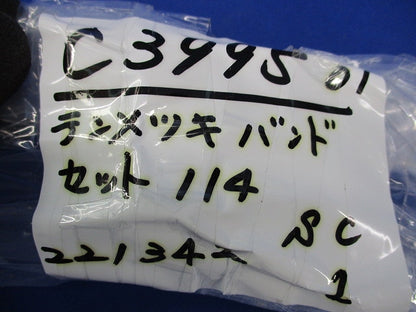 C3995 01
テンメツキ バンド
セット 114
SC
221342
1